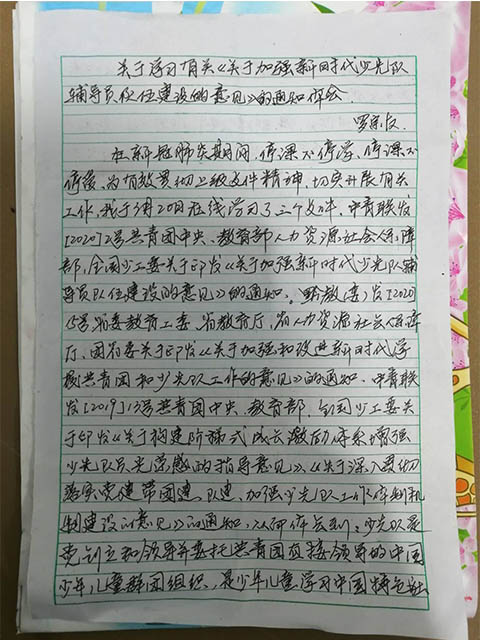 关于学习有关《关于加强新时代少先队
辅导员队伍建设的意见》的通知体会
罗宗
在新冠肺炎期间,停课不停学、停课不
停教,为有效贯彻上级文件精神,切实开展有关
工作,我于4月20日在线学习了三个文件,中青联发
[2020]2号共青团中央、教育部人力资源社会保障
部,全国少工委关于印发《关于加强新时代少先队辅
导员队伍建设的意见》的通知。黔教(委)发[2020]
15号省委教育工委、省教育厅、省人力资源社会保障
厅、团省委关于印发《关于加强和改进新时代学
校共青团和少先队工作的意见》的通知。中青联
发[2019]13号共青团中央、教育部、全国少工委关
于印发《关于构建阶梯式成长激励体系增强
少先队员光荣感的指导意见》、《关于深入贯彻
落实党建带团建、队建、加强少先队工作体制机
制建设的意见》的通知,从何体会到:少先队是
党创立和领导并委托共青团直接领导的中国
少年儿童群团组织,是少年儿童学习中国特色社